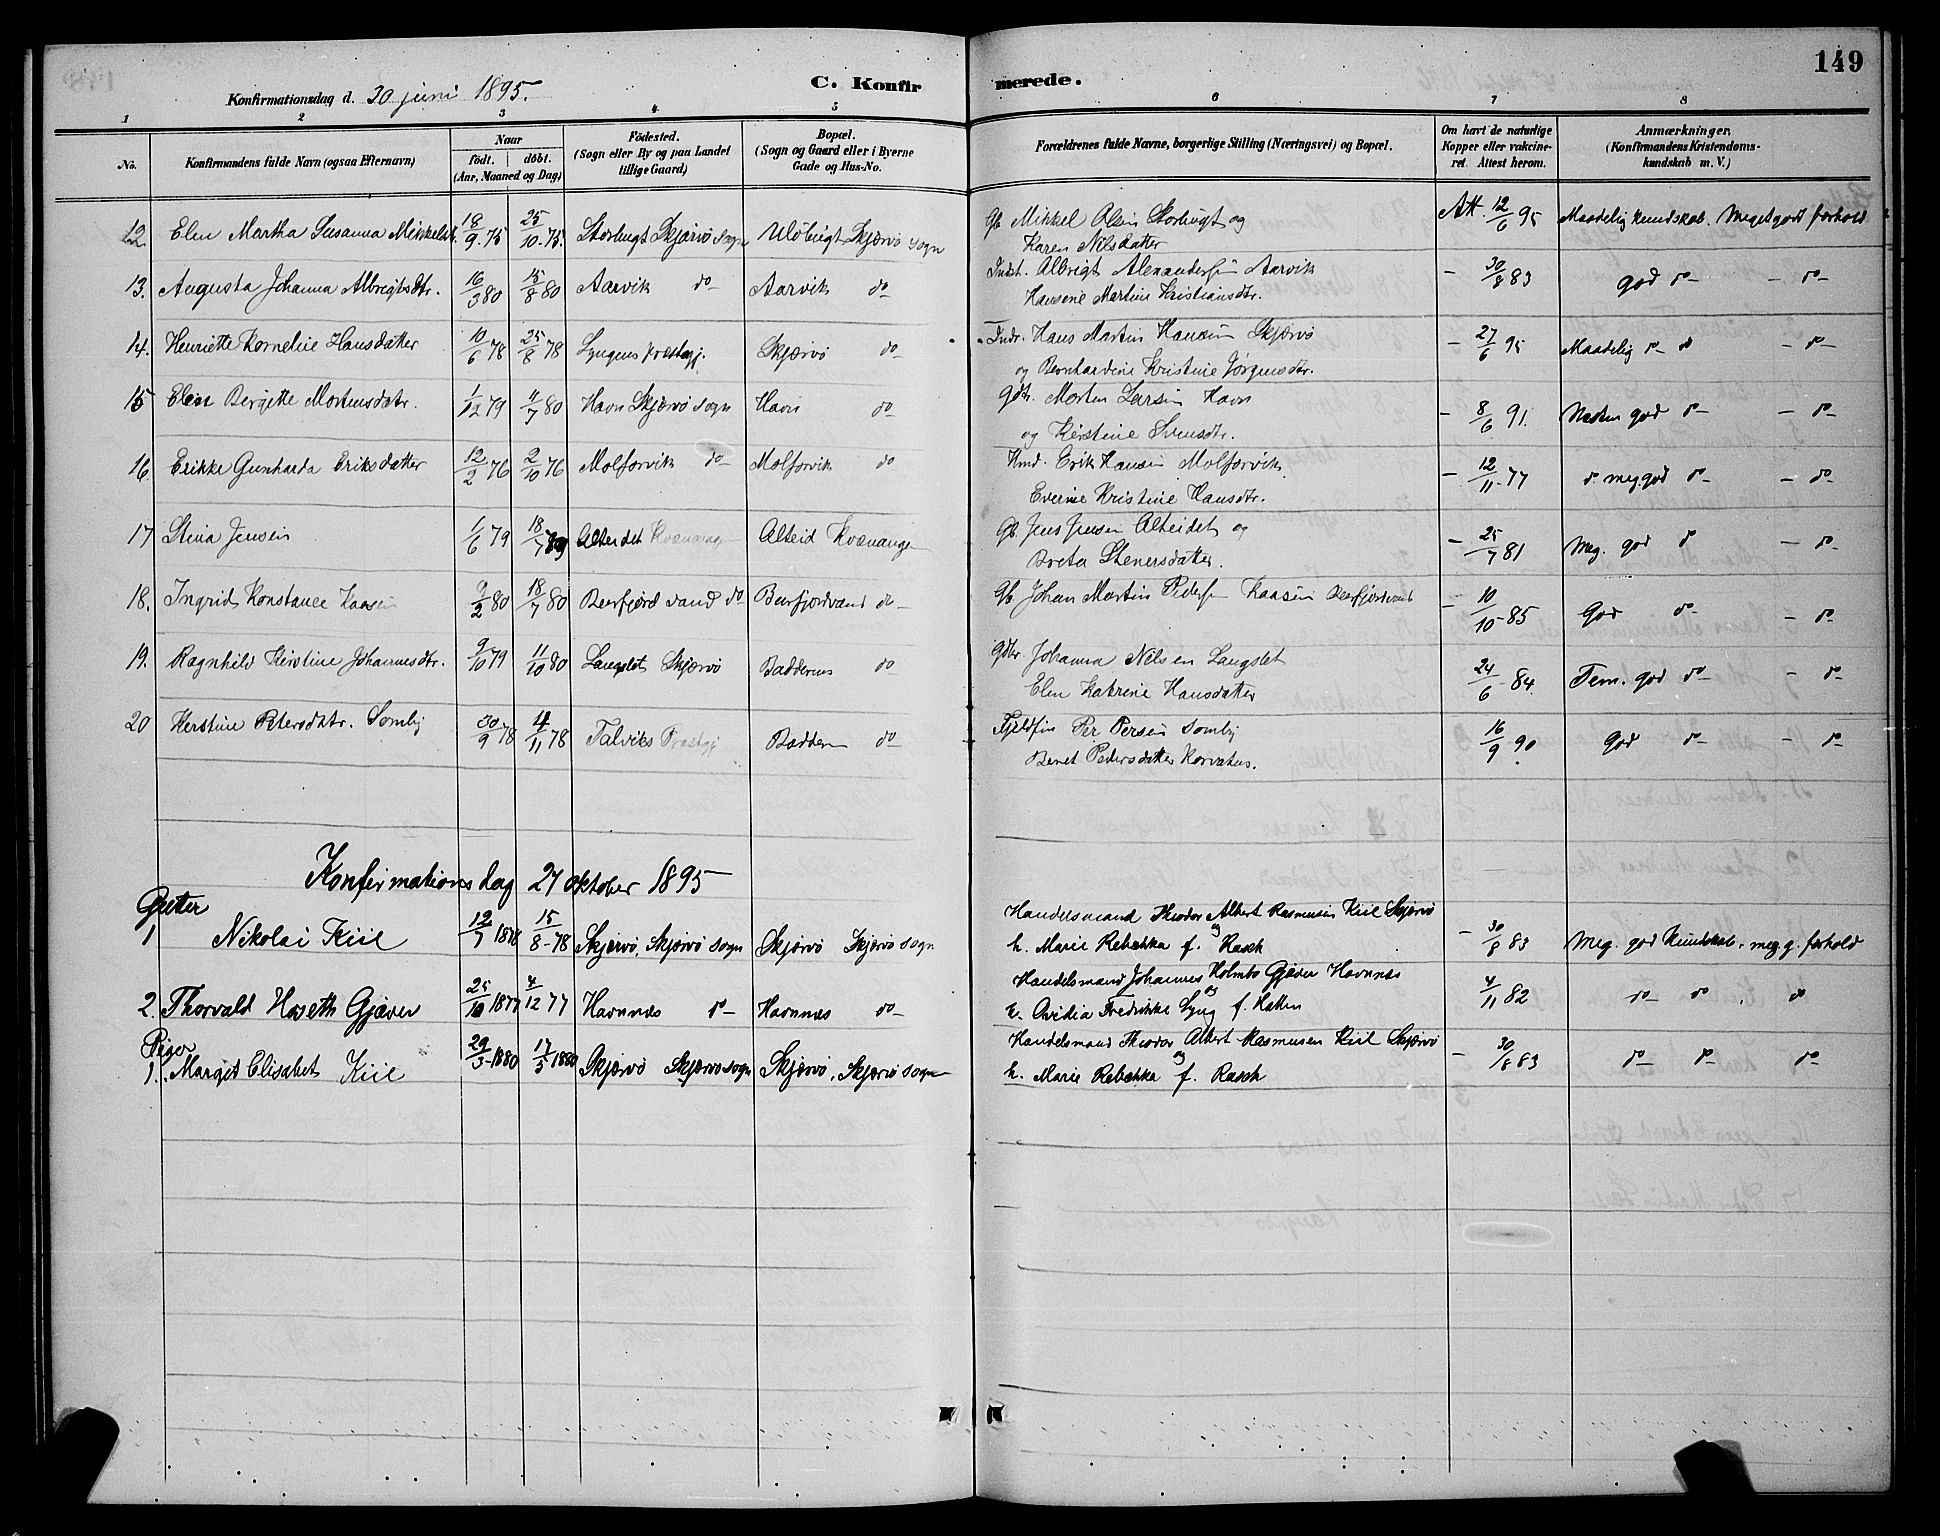 149
Konfirmationsdag d. 30 juni 1895.
C. Konfirmerede.
1 2 3 4 5 6 7 8
No.
Konfirmandens fulde Navn (ogsaa Efternavn)
Naar
födt. döbt.
(Aar, Maaned og Dag)
Födested.
(Sogn eller By og paa Landet
tillige Gaard)
Bopæl.
(Sogn og Gaard eller i Byerne
Gade og Hus-No.
Forældrenes fulde Navne, borgerlige Stilling (Næringsvei) og Bopæl.
Om havt de naturlige
Kopper eller vakcine-
ret. Attest herom.
Anmærkninger.
(Konfirmandens Kristendoms-
kundskab m. V.)
12. Elen Martha Susanna Mikkelsdt. 18/9 75 25/10 75. Storbugt Skjærvö sogn Uløbugt Skjærvö sogn Gb. Mikkel Olsen Storbugt og Att. 12/6 95 Maadelig kundskab. Meget godt forhold
Karen Nilsdatter
13. Augusta Johanna Albrigtsdtr. 16/3 80 15/8 80 Aarvik do Aarvik do Indst. Albrigt Alexandersen Aarvik – 30/8 83 god do – do
Hansene Martine Kristiansdtr.
14. Henriette Kornelie Hansdatter 10/6 78 25/8 78 Lyngens præstegj. Skjærvö do Indr. Hans Martin Hansen Skjærvö – 27/6 95 Maadelig do – do
og Bernhardine Kristine Jørgensdtr.
15 Elen Bergitte Mortensdatr. 1/12 79 11/7 80 Havn Skjærvö sogn Havn do Gdbr. Morten Larsen Havn – 8/6 91. Næsten god do – do
og Kirstine Svensdtr.
16 Erikke Gunharda Eriksdatter 12/2 76 2/10 76 Molforvik do Molforvik do Kmd. Erik Hansen Molforvik – 12/11 77 do meg. god do – do
Everine Kristine Hansdtr.
17 Stina Jensen 1/6 79 18/7 Alteidet Kvænang Alteid Kvænangen Gb. Jens Jensen Alteidet og – 25/7 81 Meg. god do – do
Breta Stenersdatter.
18. Ingrid Konstance Kaasen 9/2 80 18/7 80 Burfjord vand do Burfjordvand do Gb Johan Martin Pedersen Kaasen Burfjordvand – 10/10 85 God do – do
19. Ragnhild Kirstine Johannesdtr. 9/10 79 11/10 80 Langslet Skjærvö Badderen do Gdbr. Johanna Nilsen Langslet 24/6 84. Tem. god do – do
Elen Katrine Hansdatter
20 Kerstine Petersdatr. Somby 30/9 78 4/11 78 Talviks Præstgj Badderen do Fjeldfin Per Persen Somby 16/9 90 God do – do
Beret Pedersdatter Korvatus.
Konfirmationsdag 27 oktober 1895
Gutter
1 Nikolai Kiil 12/7 1878 15/8 78 Skjærvö, Skjærvö sogn Skjærvö Skjærvö sogn Handelsmand Theodor Albert Rasmusen Kiil Skjærvö – 30/8 83 Meg. god Kundskab, meg. g. forhold
og
h. Marie Rebekka f. Rasch
2. Thorvald Hoseth Gjæver 25/10 1877 4/12 77 Havnnes do Havnnes do Handelsmand Johannes Holmbo Gjæver Havnnes 4/11 82 do do do
og
h. Ovidia Fredrikke Lyng f. Hatten
Piger
1. Margit Elisabet Kiil 29/3 1880 17/5 1880 Skjærvö Skjærvö sogn Skjærvö, Skjærvö sogn Handelsmand Theodor Albert Rasmusen Kiil Skjærvö – 30/8 83 do do do
og
h. Marie Rebekka f. Rasch